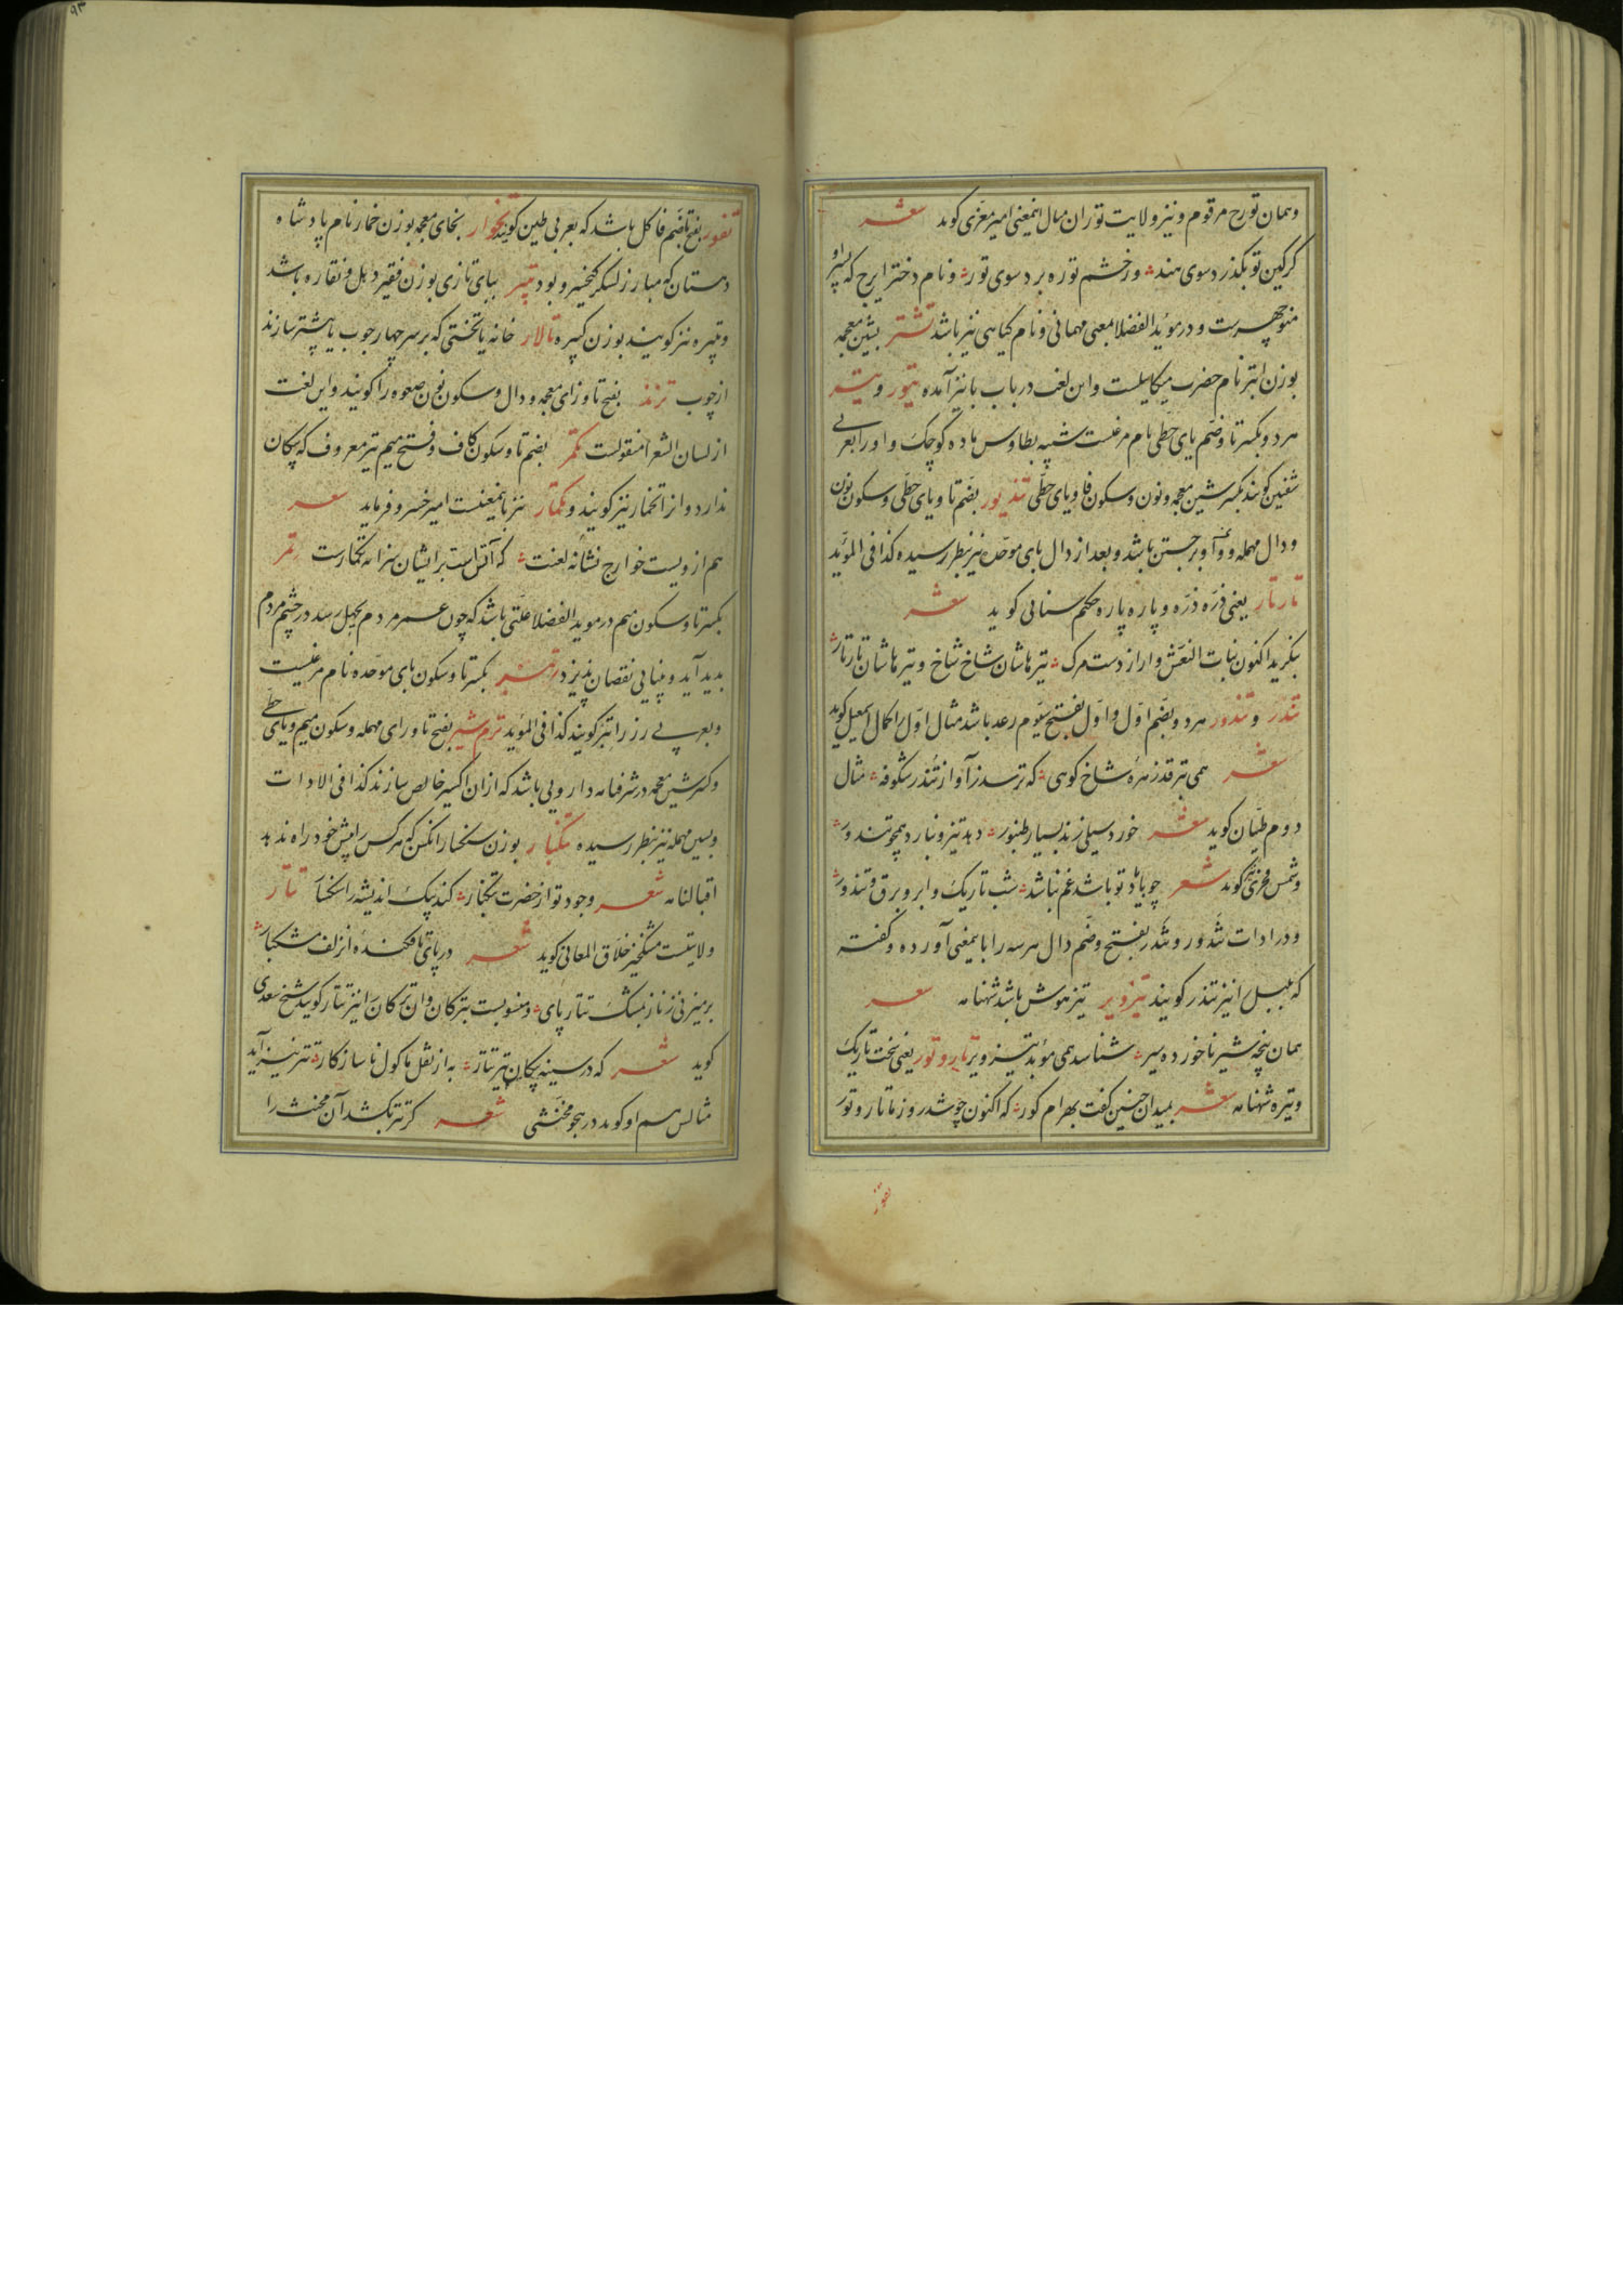 وهمان تورح مرقوم و نیز ولایت توران مثال اینمعنی امیر معزی کوید شعر
کر کین تو بکذرد سوی هند ؞ ور خشم توره برد سوی تور ؞ و نام دختر ایرج که پسر او
منوچهرست و در موئد الفضلا بمعنی مهمانی و نام کیاهی نیز باشد تشتر بشین معجمه
بوزن ابتر نام حضرت میکایلست و این لغت در باب با نیز آمده
هر دو بکسر تا و ضم یای حطی نام مرغیست شبیه بطاوس ماده کوچک و او را بعربی
شفنین کویند بکسر شین معجمه و نون و سکون فا و یای حطی بضم تا و یای حطی و سکون نون
و دال مهمله و واو بر جستن باشد و بعد از دال بای موحده نیز بنظر رسیده کذا فی الموید
تارتار یعنی ذره ذره و پاره پاره حکیم سنائی کوید شعر
بنکرید اکنون بنات النعش وار از دست مرک ؞ نیزهاشان شاخ شاخ و تیرهاشان تارتار ؞
تندر و تندور هر دو بضم اول و اول بفتح سیوم رعد باشد مثال اول را کمال اسمعیل کوید
شعر همی بترقد زهرهٔ شاخ کوهی ؞ که ترسد ز آواز تندر شکوفه ؞ مثال
دوم طیان کوید شعر خورد سیلی زند بسیار طنبور ؞ دهد تیز و نبارد همچو تندور ؞
و شمس فخری نیز کوید شعر چو با یاد تو باشد غم نباشد ؞ شب تاریک و ابر و برق و تندور ؞
و در ادات تندور و تندر بفتح و ضم دال هر سه را باینمعنی آورده و کفته
که بلبل را نیز تندر کویند تیزویر تیز هوش باشد شهنامه شعر
همان بچه شیر ناخورده سیر ؞ شناسد همی موبد تیزویر تار و تور یعنی سخت تاریک
و تیره شهنامه شعر بمیدان چنین کفت بهرام کور ؞ که اکنون چو شد روز ما تار و تور
تفور
۹۳
تفور بفتح تا و ضم فا کل باشد که بعربی طین کویند تخوار بخای معجمه بوزن خمار نام پادشاه
دهستان که مبارز لشکر کیخسرو بود تبیر ببای تازی بوزن فقیر دهل و نقاره باشد
و تبیره نیز کویند بوزن کبیره تالار خانه یا تختی که بر سر چهار چوب یا بیشتر سازند
از چوب ترند بفتح تا و زای معجمه و دال و سکون نون صعوه را کویند و این لغت
از لسان الشعرا منقولست تکمر بضم تا و سکون کاف و فتح میم تیر معروف که پیکان
ندارد و از اتخمار نیز کویند و تکمار نیز باینمعنیست امیر خسرو فرماید شعر
هم از ویست خوارج نشانهٔ لعنت ؞ که آتل است بر ایشان سزا نه تکمارست تمر
بکسر تا و سکون میم در موید الفضلا علتی باشد که چون عمر مردم بچهل رسد در چشم مردم
پدید آید و بینایی نقصان پذیرد بکسر تا و سکون بای موحده نام مرغیست
و بعربی زرزر را نیز کویند کذا فی الموید ترم شیر بفتح تا و رای مهمله و سکون میم و یای حطی
و کسر شین معجمه در شرفنامه دارویی باشد که ازان اکسیر خالص سازند کذا فی الادات
و بسین مهمله نیز بنظر رسیده تنکبار بوزن سنکسار انکس که هر کس را پیش خود راه ندهد
اقبالنامه شعر وجود تو از حضرت تنکبار ؞ کند پیک اندیشه را سنکسار تتار
ولایتیست مشکخیز خلاق المعانی کوید شعر در پای تا فکندهٔ از زلف مشکبار ؞
بر میزنی ز ناز بمشک تتار پای ؞ و منسوبست بترکان و آن ترکان را نیز تتار کویند شیخ سعدی
کوید شعر که در سینه پیکان تیر تتار ؞ به از نقل ماکول ناسازکار ؞ تتر نیز آید
مثالش هم او کوید در هجو مخنثی شعر کر تتر بکشد آن مخنث را